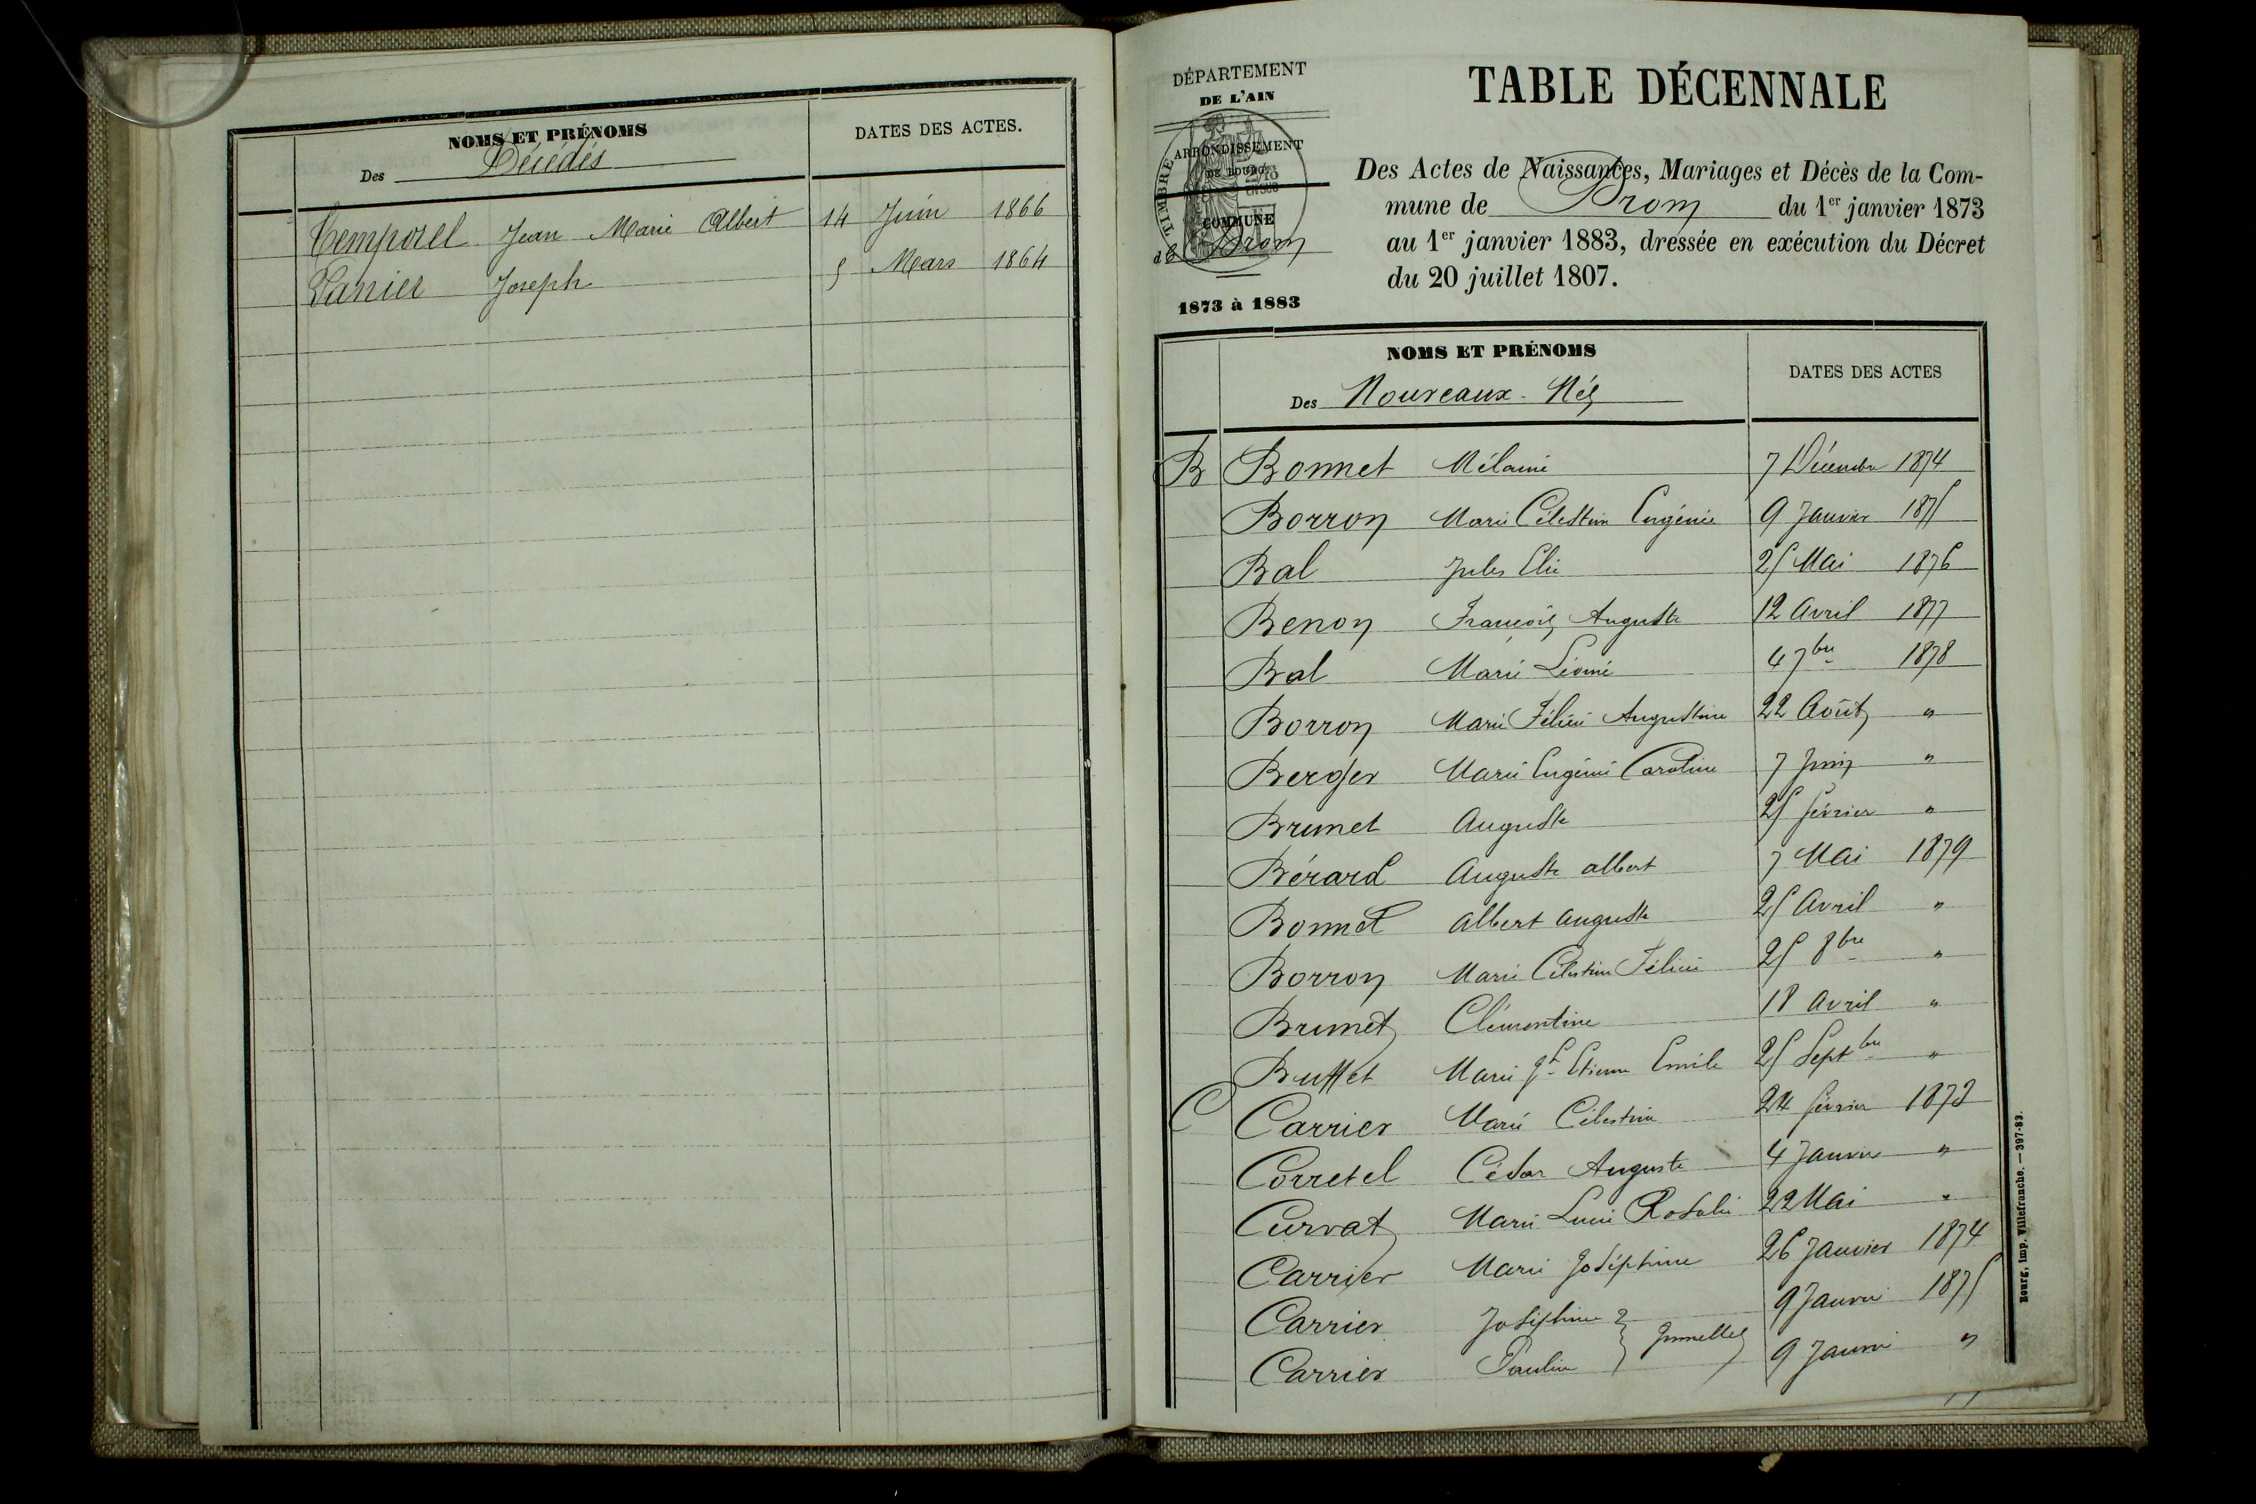 NOMS ET PRÉNOMS
Des Décédés
DATES DES ACTES.
Temporel Jean Marie Albert 14 Juin 1866
Janier Joseph 5 Mars 1864
DÉPARTEMENT
DE L'AIN
ARRONDISSEMENT
DE BOURG
TIMBRE
COMMUNE
de Drom
1873 à 1883
TABLE DÉCENNALE
Des Actes de Naissances, Mariages et Décès de la Com-
mune de Drom du 1er janvier 1873
au 1er janvier 1883, dressée en exécution du Décret
du 20 juillet 1807.
NOMS ET PRÉNOMS
Des Nouveaux-Nés
DATES DES ACTES
B Bonnet Mélanie 7 Décembre 1874
Borron Marie Célestine Eugénie 9 Janvier 1875
Bal Jules Elie 25 Mai 1876
Benon François Auguste 12 Avril 1877
Bal Marie Léonie 4 7bre 1878
Borron Marie Félicie Augustine 22 Août "
Berger Marie Eugénie Caroline 7 Juin "
Brunet Auguste 25 février "
Bérard Auguste albert 7 Mai 1879
Bonnet Albert Auguste 25 Avril "
Borron Marie Célestine Félicie 25 8bre "
Brunet Clémentine 18 Avril "
Buffet Marie Jh Etienne Emile 25 Septbre "
C Carrier Marie Célestine 24 février 1873
Corretel César Auguste 4 Janvier "
Curvat Marie Lucie Rosalie 22 Mai "
Carrier Marie Joséphine 26 Janvier 1874
Carrier Joséphine 9 Janvier 1875
Jumelles
Carrier Pauline 9 Janvier "
Bourg, imp. Villefranche. — 397-83.